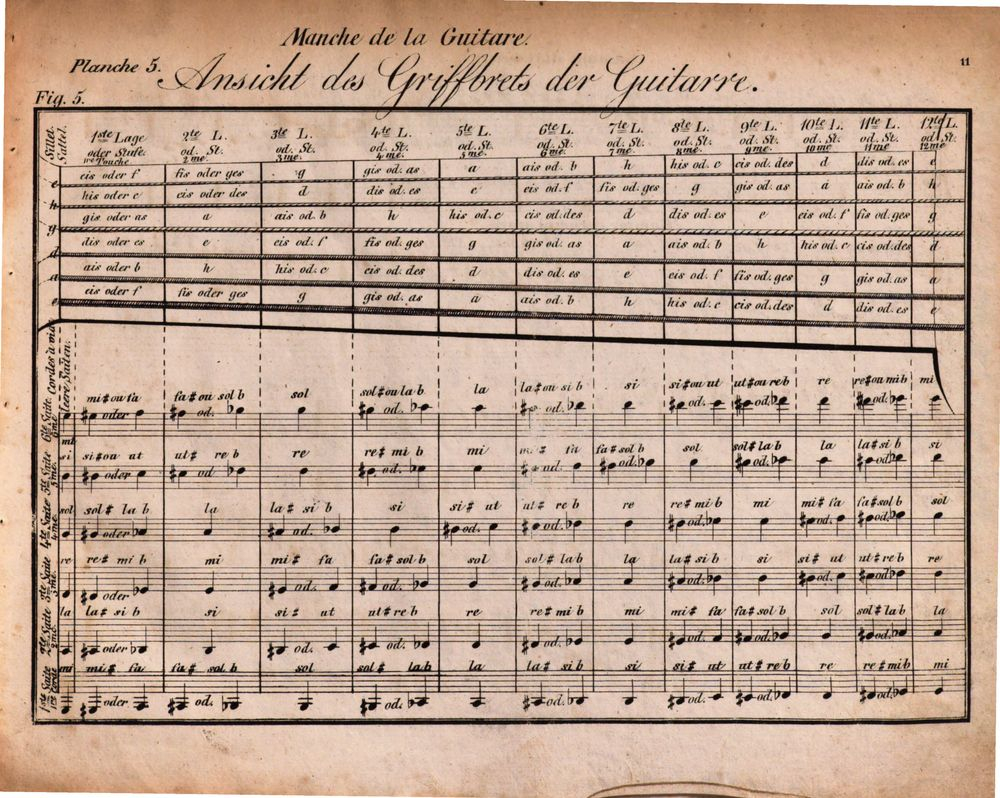 Manche de la Guitare.
Planche 5.
11
Ansicht des Griffbrets der Guitarre.
Fig. 5.
Sillet. Sattel.
1ste Lage 2te L. 3te L. 4te L. 5te L. 6te L. 7te L. 8te L. 9te L. 10te L. 11te L. 12te L.
oder Stufe. od. St. od. St. od. St. od. St. od. St. od. St. od. St. od. St. od. St. od. St. od. St.
2me. 3me. 4me. 5me. 6me. 7me. 8me. 9me. 10me 11me 12me
eis oder f fis oder ges g gis od. as a ais od. b h his od. c cis od. des d dis od. es e
e
his oder c cis oder des d dis od. es e eis od. f fis od. ges g gis od. as a ais od. b h
h
gis oder as a ais od. b h his od. c cis od. des d dis od. es e eis od. f fis od. ges g
g
dis oder es e eis od. f fis od. ges g gis od. as a ais od. b h his od. c cis od. des d
d
ais oder b h his od. c cis od. des d dis od. es e eis od. f fis od. ges g gis od. as a
a
eis oder f fis oder ges g gis od. as a ais od. b h his od. c cis od. des d dis od. es e
e
Cordes à vid
leere Saiten.
6te Saite
mi
mi♯ou fa fa♯ou sol b sol sol♯ou la b la la♯ou si b si si♯ou ut ut♯ou re b re re♯ou mi b mi
oder od. od. od. od. od. od.
5te Saite 5me.
si si♯ou ut ut♯ re b re re♯ mi b mi mi♯ fa fa♯sol b sol sol♯la b la la♯si b si
oder od od. od. od. od. od.
4te Saite 4me.
sol sol♯ la b la la♯ si b si si♯ ut ut♯ re b re re♯mi b mi mi♯fa fa♯sol b sol
oder od. od. od. od. od. od.
3te Saite 3me.
re re♯ mi b mi mi♯ fa fa♯sol b sol sol♯la b la la♯si b si si♯ ut ut♯re b re
oder od. od. od. od. od. od.
2te Saite 2me.
la la♯ si b si si♯ ut ut♯re b re re♯mi b mi mi♯ fa fa♯sol b sol sol♯la b la
oder od. od. od. od. od. od.
1ste Saite 1re Corde
mi mi♯ fa fa♯ sol b sol sol♯ la b la la♯ si b si si♯ ut ut♯ re b re re♯mi b mi
oder od. od. od. od. od. od.